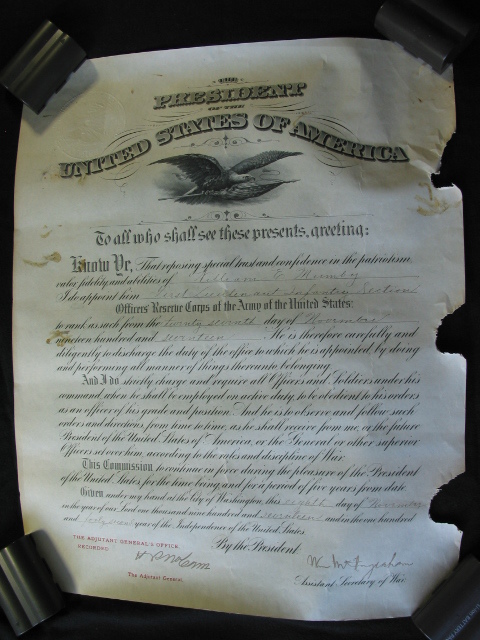 THE
PRESIDENT
OF THE
UNITED STATES OF AMERICA
To all who shall see these presents, greeting:
Know Ye, That reposing special trust and confidence in the patriotism
valor, fidelity and abilities of William
I do appoint him First Lieutenant Infantry Section
Officers Reserve Corps of the Army of the United States:
to rank as such from the twenty seventh day of November
nineteen hundred and seventeen. He is therefore carefully and
diligently to discharge the duty of the office to which he is appointed by doing
and performing all manner of things thereunto belonging.
And I do strictly charge and require all Officers and Soldiers under his
command when he shall be employed on active duty to be obedient to his orders
as an officer of his grade and position. And he is to observe and follow such
orders and directions from time to time, as he shall receive from me, or the future
President of the United States of America, or the General or other superior
Officers set over him, according to the rules and discipline of War.
This Commission to continue in force during the pleasure of the President
of the United States for the time being and for a period of five years from date.
Given under my hand at the City of Washington, this day of
in the year of our Lord one thousand nine hundred and seventeen and in the one hundred
and forty second year of the Independence of the United States.
By the President
THE ADJUTANT GENERAL'S OFFICE
RECORDED
The Adjutant General.
Assistant Secretary of War.